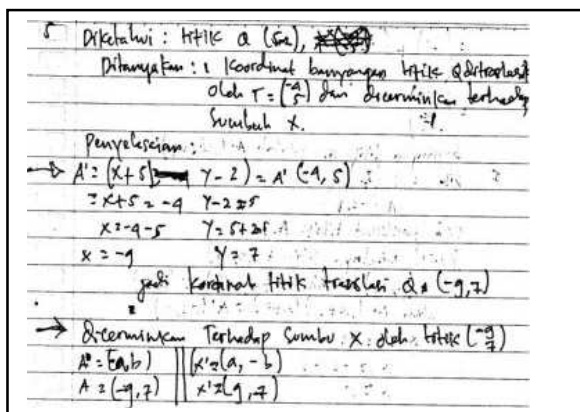 5 Diketahui : titik Q (5,-2),
Ditanyakan : Koordinat bayangan titik Q ditranslasi
oleh T = (-4 5) dan dicerminkan terhadap
Sumbuh X.
Penyelesaian :
→ A' = (x+5 y-2) = A' (-4, 5)
= x+5 = -4 y-2 = 5
x = -4-5 y = 5+2
x = -9 y = 7
jadi kordinat titik translasi Q (-9,7)
→ dicerminkan Terhadap Sumbu X oleh titik (-9 7)
A' = (a,b) || x' = (a, -b)
A = (-9,7) || x' = (9,-7)